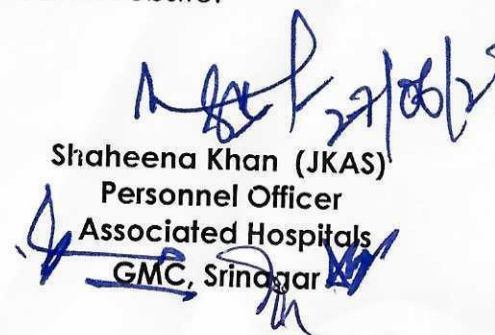 Shaheena Khan (JKAS)
Personnel Officer
Associated Hospitals
GMC, Srinagar